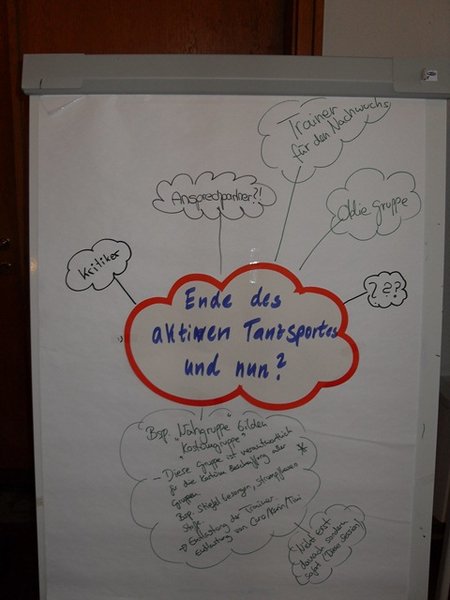 Trainer
für den Nachwuchs
Ansprechpartner?!
Oldie Gruppe
Kritiker
???
Ende des
aktiven Tanzsportes
und nun?
Bsp. "Nähgruppe" bilden
"Kostümgruppe"
- Diese Gruppe ist verantwortlich
für die Kostüm Beschaffung aller
Gruppen
Bsp. Stiefel besorgen, Strumpfhosen
Stoffe.
→ Entlastung der Trainer
Entlastung von Caro/
Nicht erst
danach sondern
sofort (Diese Session)